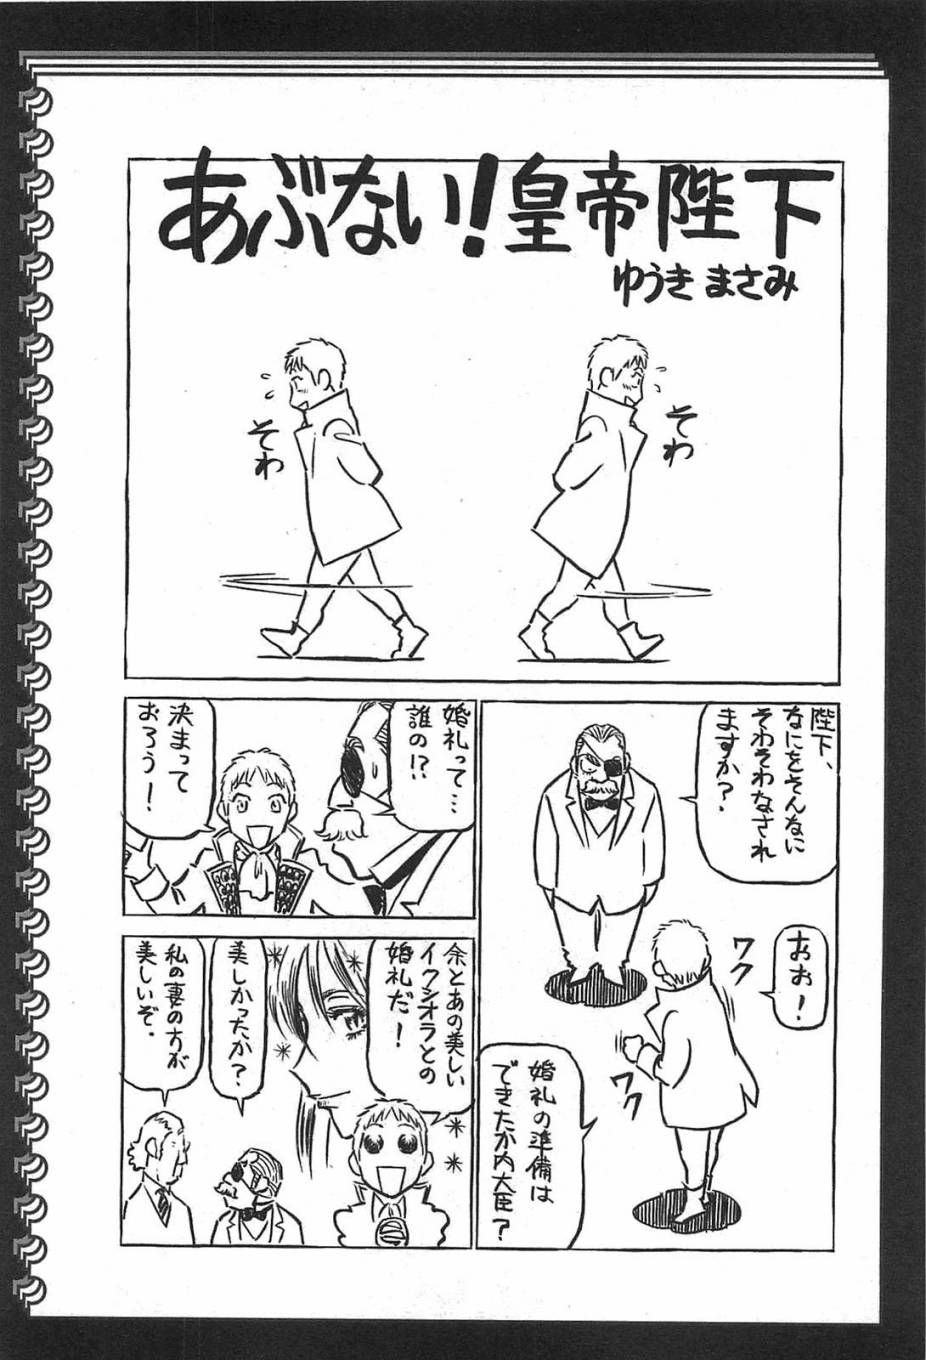 あぶない!皇帝陛下
ゆうきまさみ
そわ
そわ
陛下、
なにをそんなに
そわそわなされ
ますか?
おお!
ワク
ワク
婚礼の準備は
できたか内大臣?
婚礼って…
誰の!?
決まって
おろう!
余とあの美しい
イクシオラとの
婚礼だ!
美しかったか?
私の妻の方が
美しいぞ.